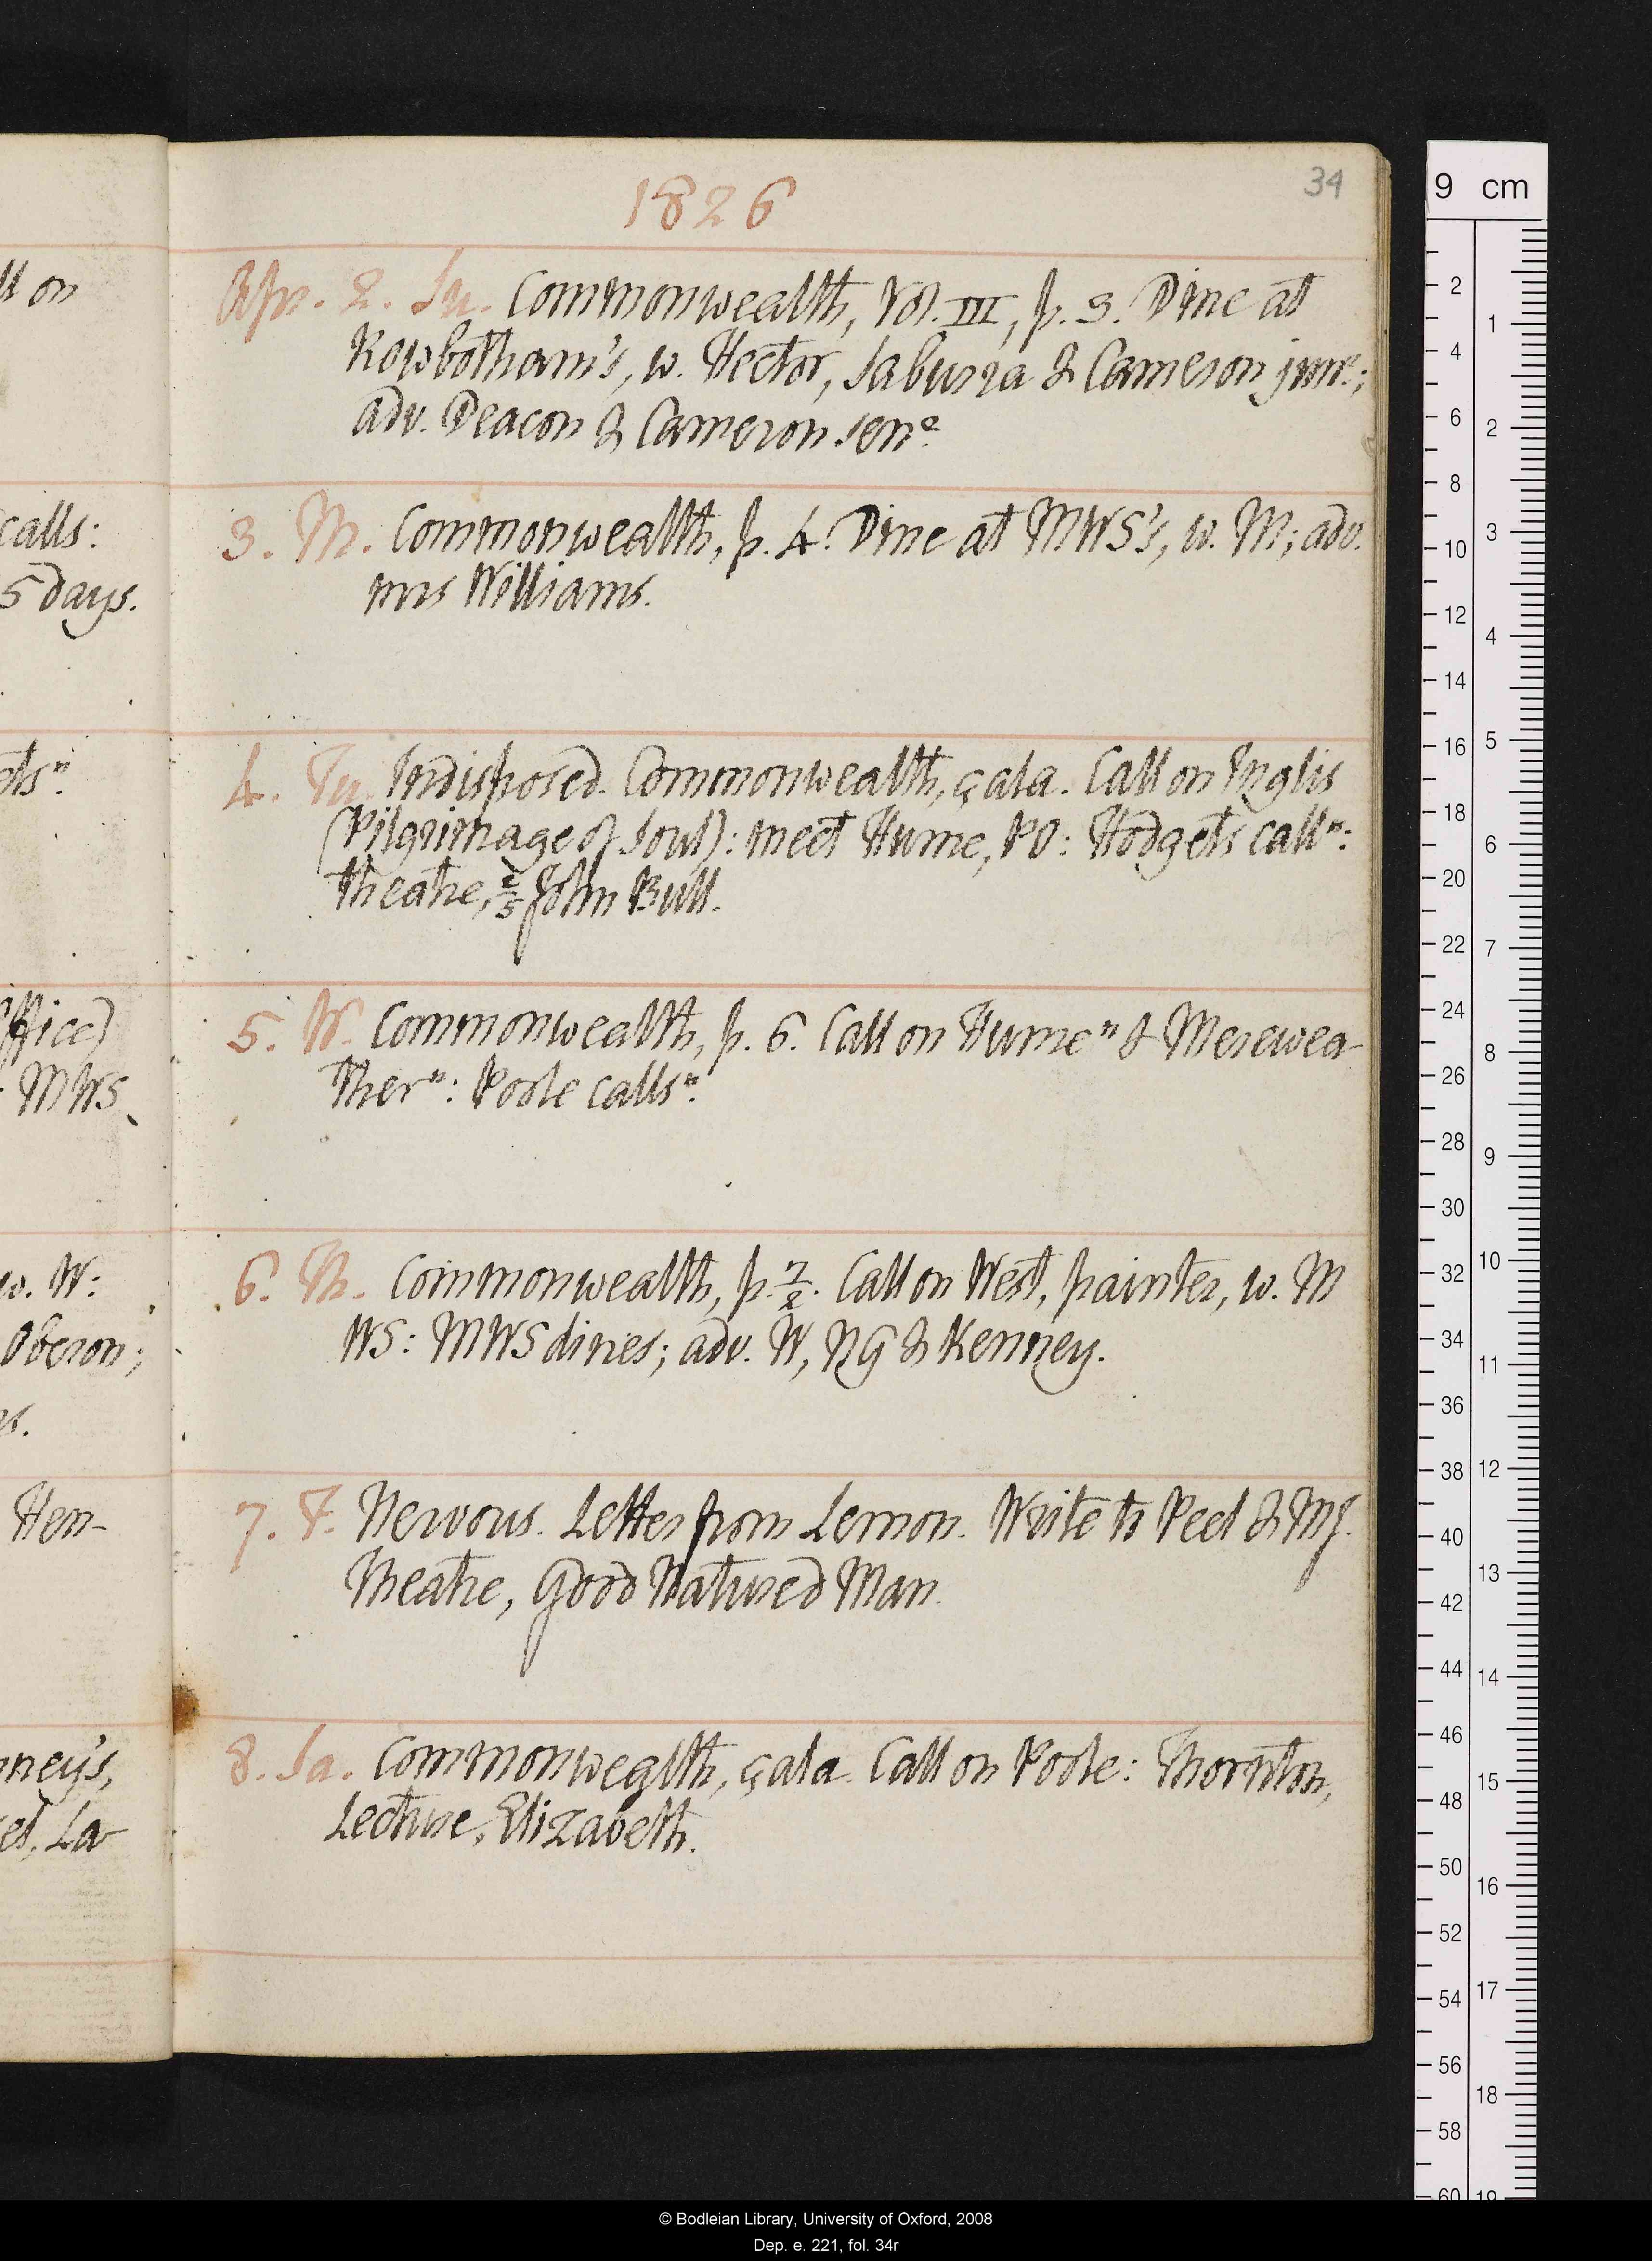 1826
34
ll on
calls:
5 days.
ets n.
ffice)
MWS
w. W:
Oberon;
Hen-
nney's,
et, La-
Apr. 2. Su. Commonwealth, Vol. III, p. 3. Dine at
Rowbotham's, w. Hector, Saburra & Cameron junr.;
adv. Deacon & Cameron senr.
3. M. Commonwealth, p. 4. Dine at MWS's, w. M; adv.
mrs Williams.
4. Tu. Indisposed. Commonwealth, çala. Call on Inglis
(Pilgrimage of Soul): meet Hume, PO: Hodgets calls n:
theatre, 2/5 John Bull.
5. W. Commonwealth, p. 6. Call on Hume n & Merewea-
ther n: Poole calls n.
6. Th. Commonwealth, p. 7/2. Call on West, painter, w. M
WS: MWS dines; adv. W, NG & Kenney.
7. F. Nervous. Letter from Lemon. Write to Peel & MJ.
Theatre, Good Natured Man.
8. Sa. Commonwealth, çala. Call on Poole: Thornton,
Lecture, Elizabeth.
9 cm
2
4
6
8
10
12
14
16
18
20
22
24
26
28
30
32
34
36
38
40
42
44
46
48
50
52
54
56
58
60
1
2
3
4
5
6
7
8
9
10
11
12
13
14
15
16
17
18
19
© Bodleian Library, University of Oxford, 2008
Dep. e. 221, fol. 34r